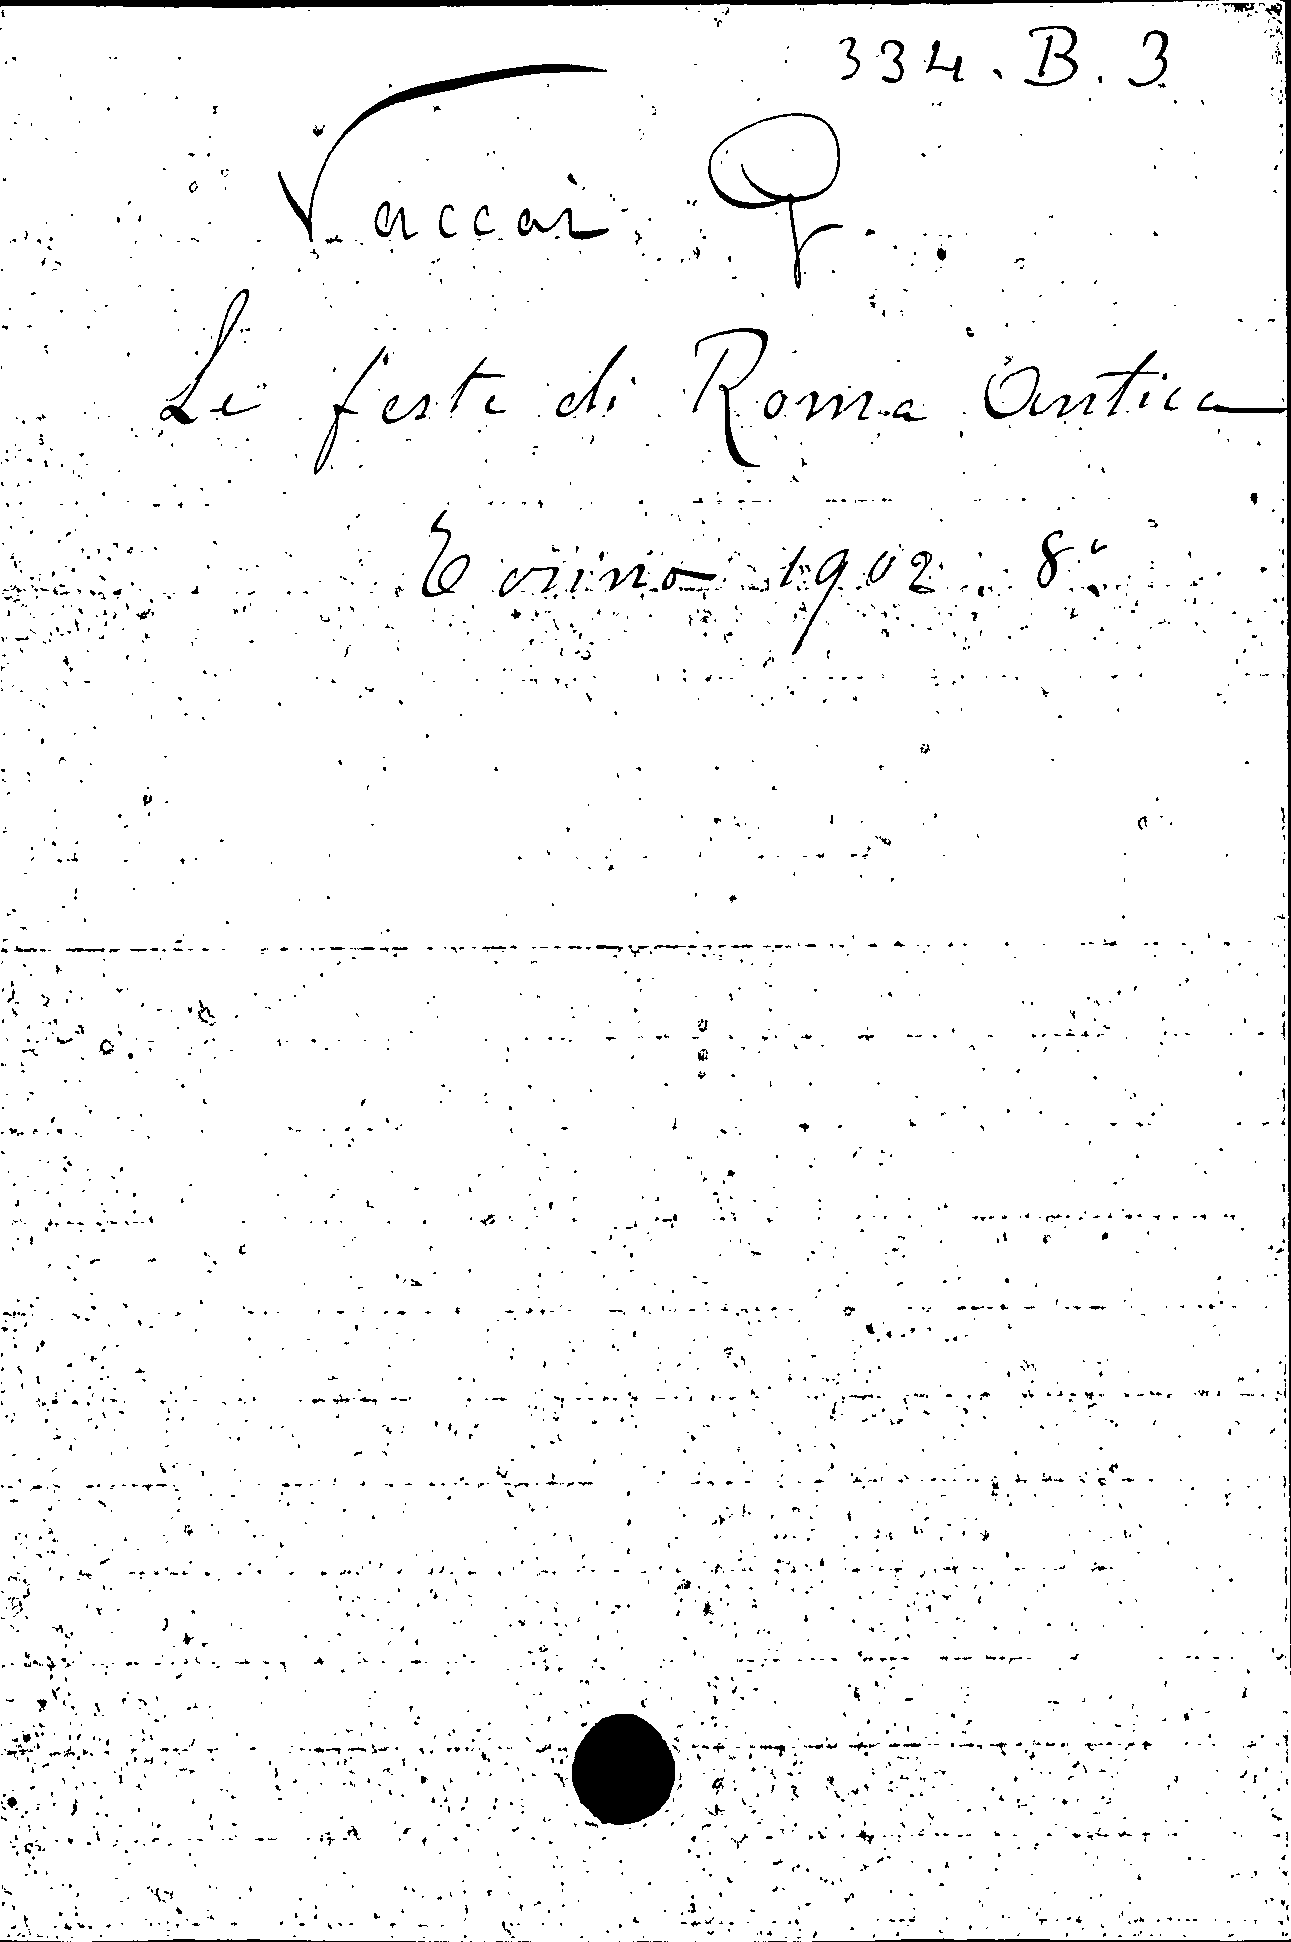 334.B.3
Vaccai Q.
Le feste di Roma Antica
Torino 1902. 8°